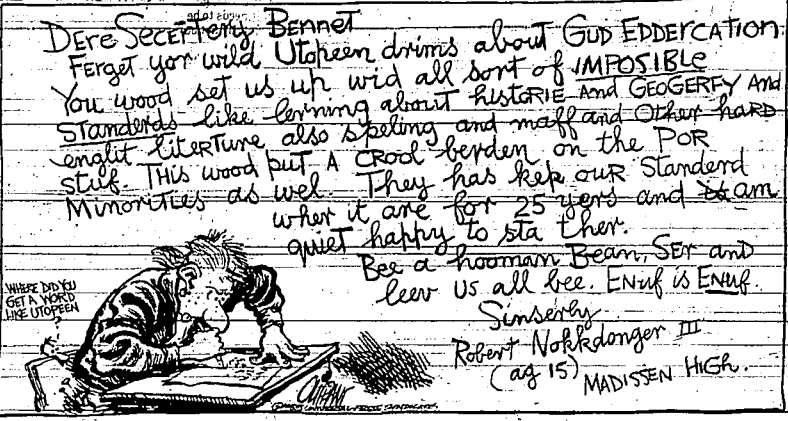 DERE SECERTERY BENNET
FERGET yor wild Utopeen drims about GUD EDDERCATION.
You wood set us up wid all sort of IMPOSIBLE
STANDERDS like lerning about hISTORIE And GEOGERFY And
englit literture also speling and maff and Other hARD
stuf. THis wood put A CROOL berden on the POR
Minorities as wel. They has kep ouR Standerd
wher it are for 25 yers and am
quiet happy to sta ther.
Bee a hooman Bean, SEr and
leev US all bee. ENuf is ENuf.
Sinserly
Robert Nokkdonger III
(ag 15) MADISSEN HiGh.
WHERE DID YOU
GET A WORD
LIKE UTOPEEN
?